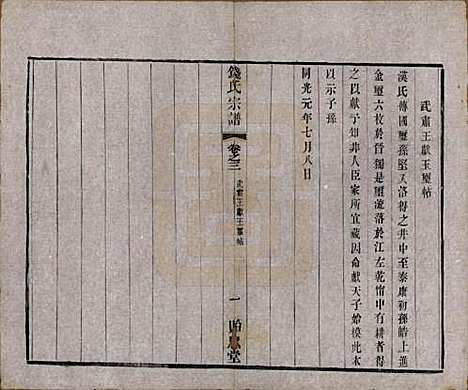 武肅王獻玉璽帖
漢氏傳國璽孫堅入洛得之井中至泰康初孫皓上晉
金璽六枚於晉獨是璽流落於江左乾甯中有耕者得
之以獻予知非人臣家所宜藏因命獻天子始模此本
以示子孫
同光元年七月八日
錢氏宗譜
卷之三
武肅王獻玉璽帖
一
堂